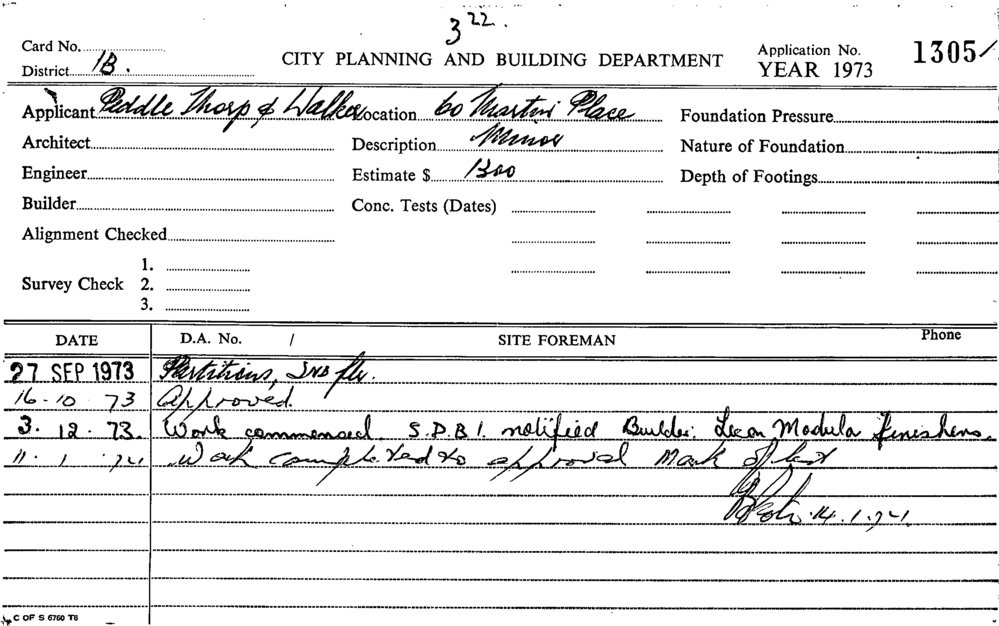 3 22.
Card No.
District 1B.
CITY PLANNING AND BUILDING DEPARTMENT
Application No. 1305/
YEAR 1973
Applicant Peddle Thorp & Walker Location 60 Martin Place Foundation Pressure
Architect Description Minor Nature of Foundation
Engineer Estimate $ 1300 Depth of Footings
Builder Conc. Tests (Dates)
Alignment Checked
1.
Survey Check 2.
3.
DATE D.A. No. / SITE FOREMAN Phone
27 SEP 1973 Partitions, 2nd flr.
16-10-73 Approved.
3.12.73. Work commenced. S.D.B.I. notified Builder: Modula Finishers.
11.1.74 Work completed to approval
14.1.74.
C OF S 6760 T6